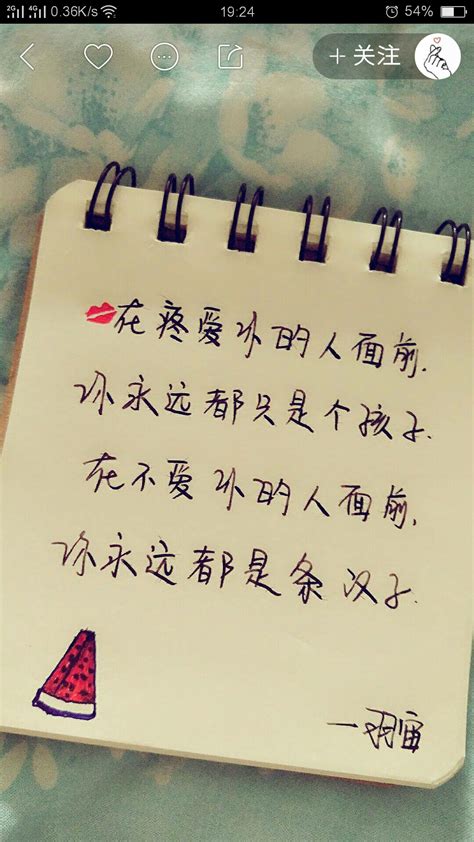 2G 4G 0.36K/s 19:24 54%
+关注
在疼爱你的人面前.
你永远都只是个孩子.
在不爱你的人面前,
你永远都是条汉子.
—羽宙